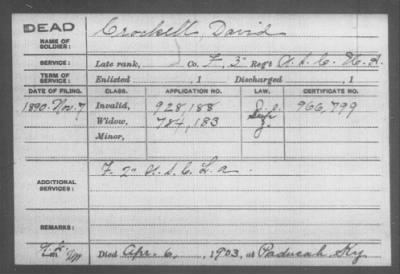 DEAD
NAME OF SOLDIER: Crockett, David
SERVICE: Late rank, Co. F, 3" Reg't U.S.C. H.A.
TERM OF SERVICE: Enlisted , 1 Discharged , 1
DATE OF FILING. CLASS. APPLICATION NO. LAW. CERTIFICATE NO.
1890-Nov. 7 Invalid, 928,188 966,799
Widow, 784,183
Minor,
ADDITIONAL SERVICES: F. 2" U.S.C. L.a.
REMARKS:
Died Apr. 6, 1903, at Paducah Ky